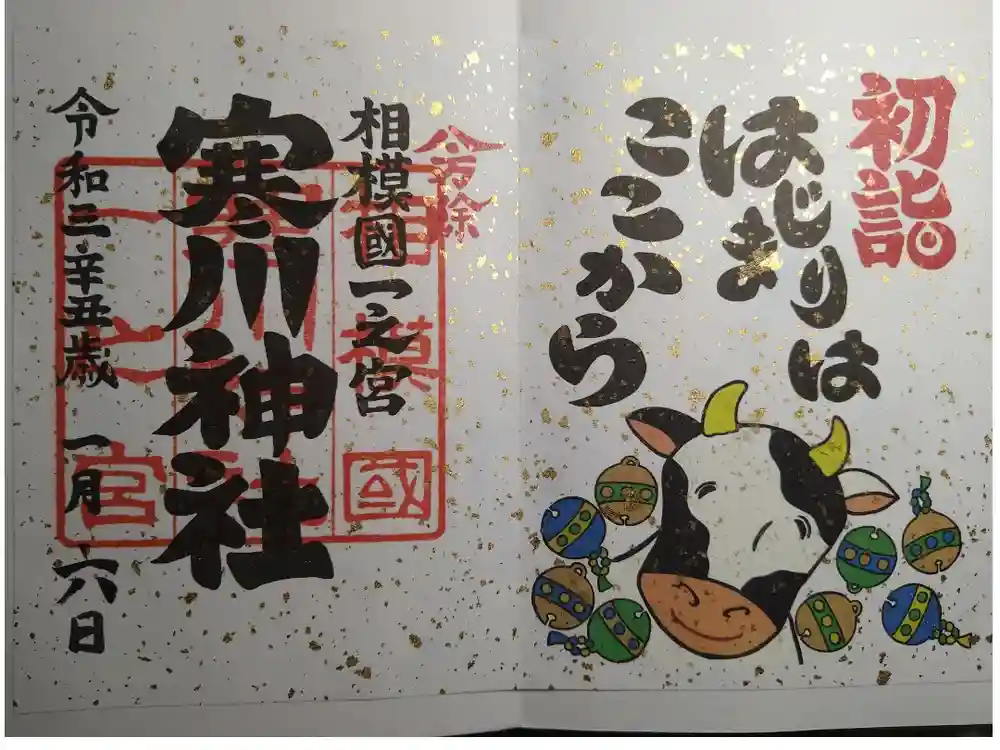 初詣
はじまりは
ここから
相模國一之宮
寒川神社
令和三辛丑歳 一月 六日
相模國
一之宮